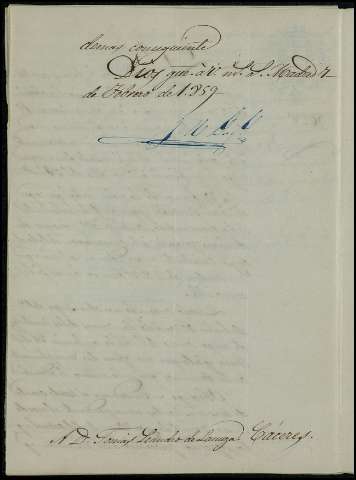 demas consiguiente
Dios gue. á V. m.s a.s Madrid 7
de Febrero de 1.859
A D. Tomás Leandro de Lanuza. Cáceres.